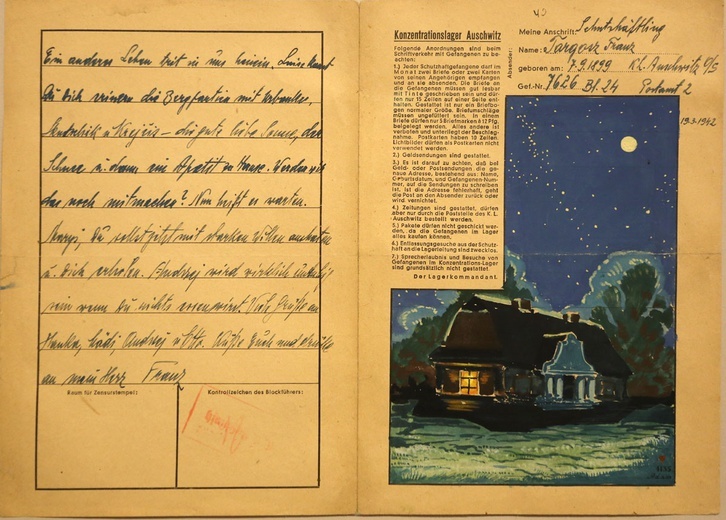 Ein anderes Leben tritt in uns hinein. Luise kannst
Du Dich erinern die Bergpartie mit
die gute liebe Sonne, der
Schnee u. dann ein Apetit zu Hause. Werden wir
das noch mitmachen? Nun heist es warten.
Du sollst jetzt mit starken
u. Dich erholen. Andrzej wird wirklich
sein wenn Du nichts essen wirst. Viele Grüße an
Hanka, Andrzej u. Otto. Grüße Euch und drücke
an mein Herz Franz
Raum für Zensurstempel:
Kontrollzeichen des Blockführers:
Konzentrationslager Auschwitz
Folgende Anordnungen sind beim
Schriftverkehr mit Gefangenen zu be-
achten:
1.) Jeder Schutzhaftgefangene darf im
Monat zwei Briefe oder zwei Karten
von seinen Angehörigen empfangen
und an sie absenden. Die Briefe an
die Gefangenen müssen gut lesbar
mit Tinte geschrieben sein und dür-
fen nur 15 Zeilen auf einer Seite ent-
halten. Gestattet ist nur ein Briefbo-
gen normaler Größe. Briefumschläge
müssen ungefüttert sein. In einem
Briefe dürfen nur 5 Briefmarken à 12 Pfg.
beigelegt werden. Alles andere ist
verboten und unterliegt der Beschlag-
nahme. Postkarten haben 10 Zeilen.
Lichtbilder dürfen als Postkarten nicht
verwendet werden.
2.) Geldsendungen sind gestattet.
3.) Es ist darauf zu achten, daß bei
Geld- oder Postsendungen die ge-
naue Adresse, bestehend aus: Name,
Geburtsdatum, und Gefangenen-Num-
mer, auf die Sendungen zu schreiben
ist. Ist die Adresse fehlerhaft, geht
die Post an den Absender zurück oder
wird vernichtet.
4.) Zeitungen sind gestattet, dürfen
aber nur durch die Poststelle des K. L.
Auschwitz bestellt werden.
5.) Pakete dürfen nicht geschickt wer-
den, da die Gefangenen im Lager
alles kaufen können,
6.) Entlassungsgesuche aus der Schutz-
haft an die Lagerleitung sind zwecklos.
7.) Sprecherlaubnis und Besuche von
Gefangenen im Konzentrations-Lager
sind grundsätzlich nicht gestattet.
Der Lagerkommandant.
Absender:
Meine Anschrift: Schutzhäftling
Name: Targosz Franz
geboren am: 7.9.1899 K.L. Auschwitz O/S
Gef.-Nr. 7626 Bl. 24 Postamt 2
19.3.1942